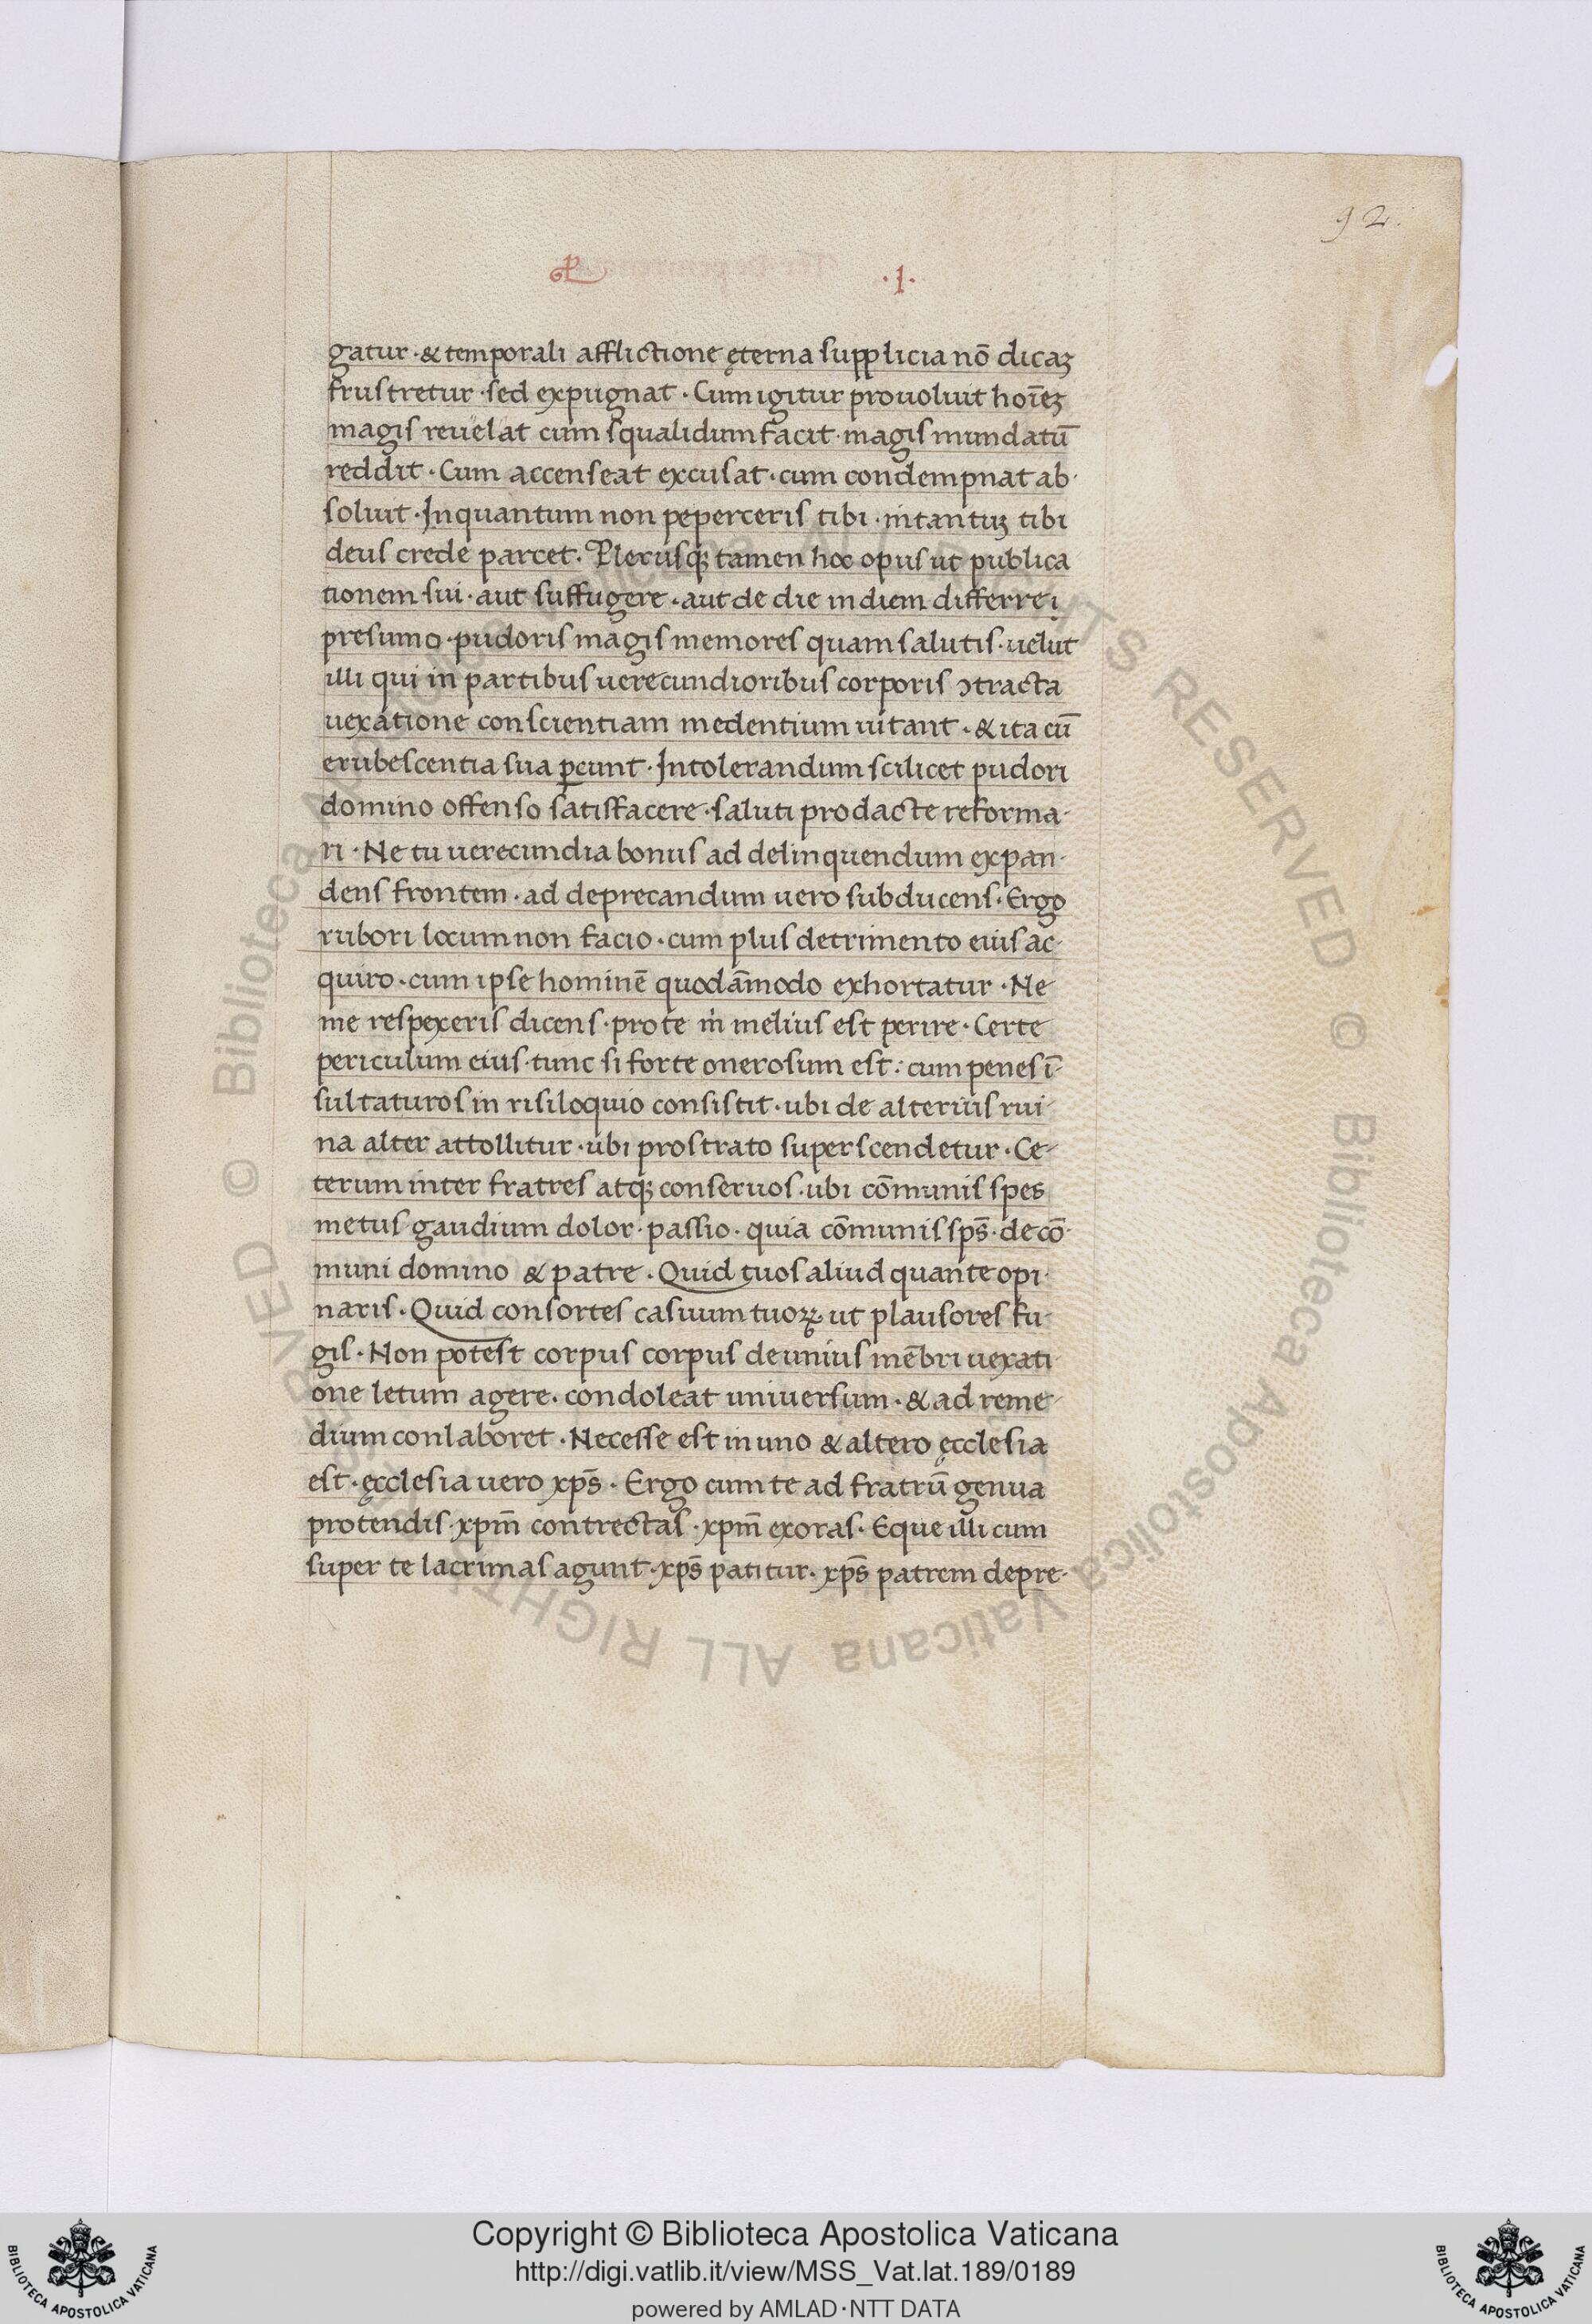 92.
·I·
gatur · & temporali afflictione ęterna supplicia nō dicaꝫ
frustretur · sed expugnat · Cum igitur prouoluit hoīeꝫ
magis reuelat cum squalidum facit · magis mundatū
reddit · Cum accenseat excusat · cum condempnat ab-
soluit · Inquantum non peperceris tibi · intantuꝫ tibi
deus crede parcet · Plerusqꝫ tamen hoc opus ut publica
tionem sui · aut suffugere · aut de die in diem differre
presumo · pudoris magis memores quam salutis · uelut
illi qui in partibus uerecundioribus corporis ɔtracta
uexatione conscientiam medentium uitant · & ita cū
erubescentia sua ꝑeunt · Intolerandum scilicet pudori
domino offenso satisfacere · saluti prodacte reforma-
ri · Ne tu uerecundia bonus ad delinquendum expan-
dens frontem · ad deprecandum uero subducens · Ergo
rubori locum non facio · cum plus detrimento eius ac-
quiro · cum ipse hominē quodāmodo exhortatur · Ne
me respexeris dicens · pro te m̄ melius est perire · Certe
periculum eius · tunc si forte onerosum est : cum penes ī-
sultaturos in risiloquio consistit · ubi de alterius rui-
na alter attollitur · ubi prostrato superscendetur · Ce-
terum inter fratres atqꝫ conseruos · ubi cōmunis spes
metus gaudium dolor · passio · quia cōmunis sps̄ · de cō-
muni domino & patre · Quid tuos aliud quante opi-
naris · Quid consortes casuum tuoꝝ ut plausores fu-
gis · Non potest corpus corpus de unius mēbri uexati
one letum agere · condoleat uniuersum · & ad reme-
dium conlaboret · Necesse est in uno & altero ęcclesia
est · ęcclesia uero xps̄ · Ergo cum te ad fratrū genua
protendis · xpm̄ contrectas · xpm̄ exoras · Eque illi cum
super te lacrimas agunt · xps̄ patitur · xps̄ patrem depre-
Copyright © Biblioteca Apostolica Vaticana
http://digi.vatlib.it/view/MSS_Vat.lat.189/0189
powered by AMLAD·NTT DATA
BIBLIOTECA APOSTOLICA VATICANA
BIBLIOTECA APOSTOLICA VATICANA
© Biblioteca Apostolica Vaticana ALL RIGHTS RESERVED © Biblioteca Apostolica Vaticana ALL RIGHTS RESERVED